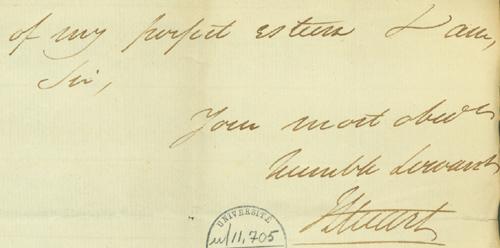 of my perfect esteem & am,
Sir,
Your most obedt
humble Servant
JStuart
UNIVERSITÉ
u/11,705